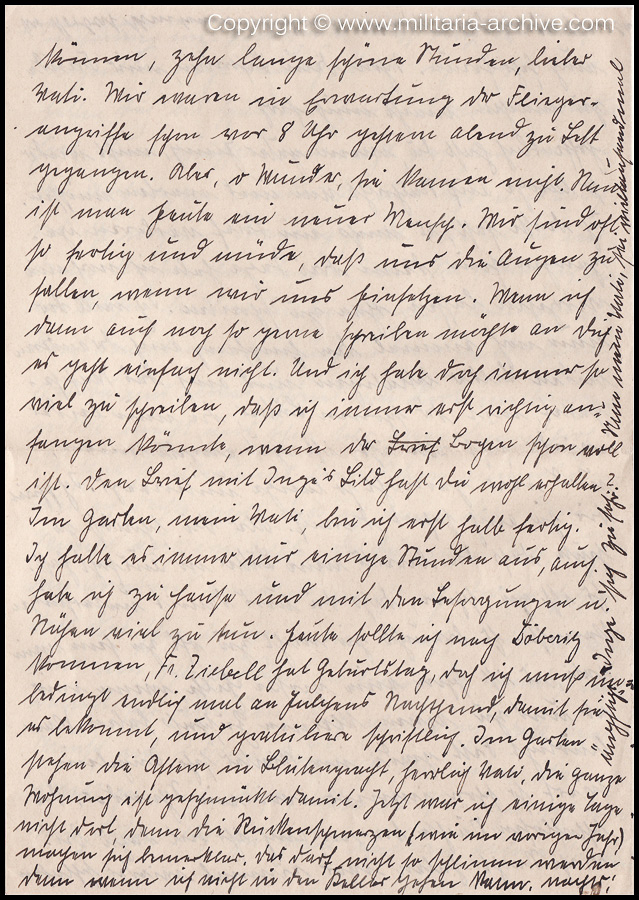 Copyright © www.militaria-archive.com
können, zehn lange schöne Stunden, lieber
Vati. Wir waren in Erwartung der Flieger-
angriffe schon vor 8 Uhr gestern abend zu Bett
gegangen. Aber, o Wunder, sie kamen nicht. Nun
ist man heute ein neuer Mensch. Wir sind oft
so fertig und müde, daß uns die Augen zu
fallen, wenn wir uns hinsetzen. Wenn ich
dann auch noch so gerne schreiben möchte an Dich
es geht einfach nicht. Und ich habe doch immer so
viel zu schreiben, daß ich immer erst richtig an-
fangen könnte, wenn der Brief Bogen schon voll
ist. Den Brief mit Inge's Bild hast Du wohl erhalten?
Im Garten, mein Vati, bin ich erst halb fertig.
Ich halte es immer nur einige Stunden aus, auch
habe ich zu Hause und mit den Besorgungen u.
Nähen viel zu tun. Heute sollte ich nach Döberitz
kommen, Fr. Ziebell hat Geburtstag, doch ich muß un-
bedingt endlich mal an Julchens Nachthemd, damit sie
es bekommt, und gratuliere schriftlich. Im Garten
stehen die Astern in Blütenpracht, herrlich Vati, die ganze
Wohnung ist geschmückt damit. Jetzt war ich einige Tage
nicht dort denn die Rückenschmerzen (wie im vorigen Jahr)
machen sich bemerkbar. Das darf nicht so schlimm werden
denn wenn ich nicht in den Keller gehen kann, nachts!
Inge sich zu sehr. Nun mein Vati, sei vieltausendmal